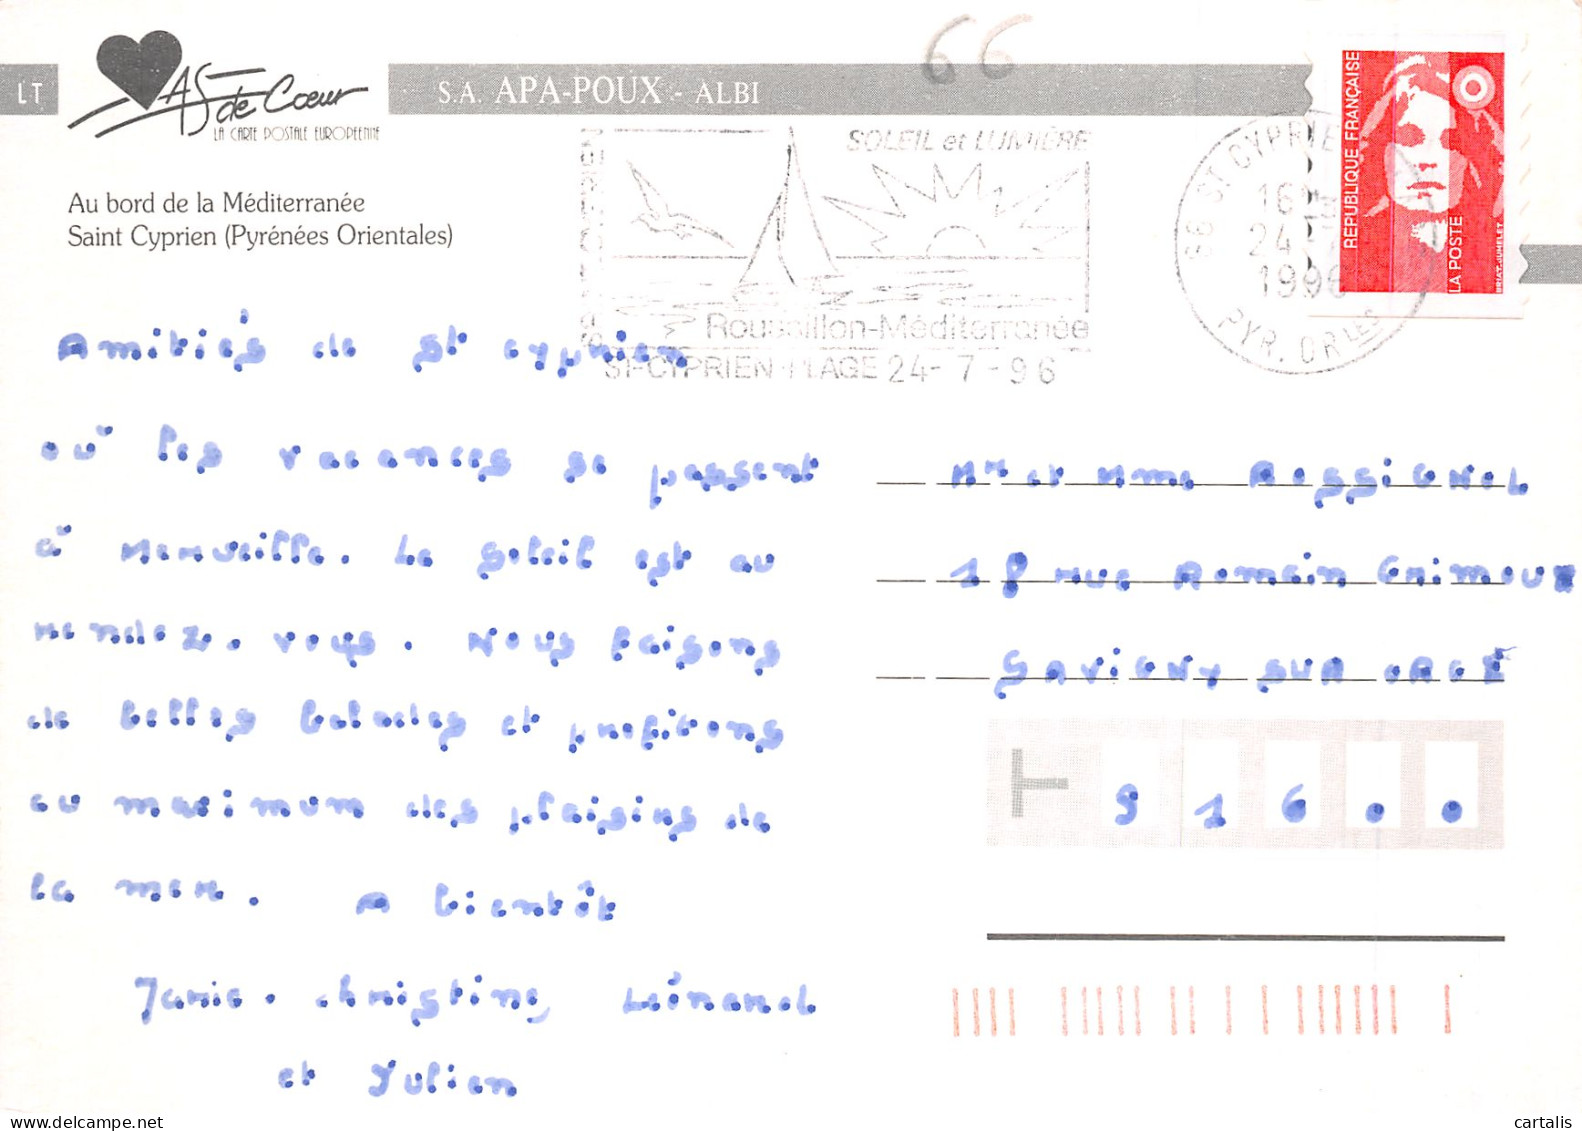 66
LT
AS de Cœur
LA CARTE POSTALE EUROPÉENNE
S.A. APA-POUX - ALBI
Au bord de la Méditerranée
Saint Cyprien (Pyrénées Orientales)
SOLEIL et LUMIÈRE
Roussillon-Méditerranée
ST-CYPRIEN PLAGE 24-7-96
66 ST CYPRIEN
16H
24-
1996
PYR. ORLES
REPUBLIQUE FRANÇAISE
LA POSTE
BRIAT.JUMELET
Amitiés de St Cyprien
où les vacances se passent
à merveille. Le soleil est au
rendez-vous. Nous faisons
de belles balades et profitons
au maximum des plaisirs de
la mer. A bientôt
Janie. Christine, Léonard
et Julien
Mr et Mme ROSSIGNOL
18 rue Romain
SAVIGNY SUR ORGE
91600
cartalis